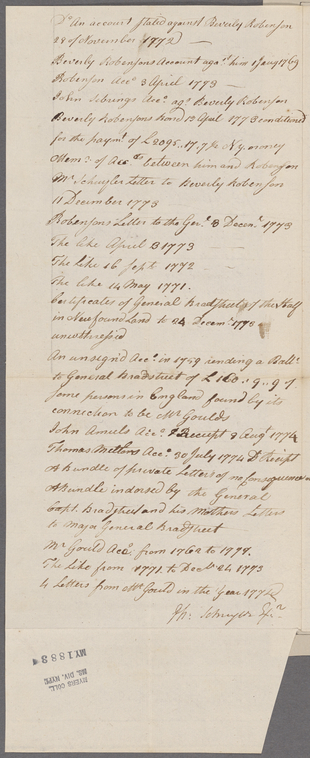 Do An account stated against Beverly Robenson
28 of November 1772
Beverly Robensons Account agat him 1 Augt 1769
Robenson Acco 3 April 1773
John Sebrings Acco agt Beverly Robenson
Beverly Robensons bond 13 April 1773 conditioned
for the paymt of £2095..17..7½ N. y. money
Memo of Accts between him and Robenson
Mr Schuyler Letter to Beverly Robenson
11 December 1773
Robensons Letter to the Genl 8 Decemr 1773
The like April 3 1773
The Like 16 Sept 1772
The Like 14 May 1771.
Certificates of General Bradstreet of the Staff
in Newfound Land to 24 Decemr 1775
unwitnessed
An unsign'd Acco in 1759 sending a Ballce
to General Bradstreet of £160..9..9 of
some persons in England found by its
connection to be Mr Goulds
John Ameils Acco & Receipt 9 Augt 1774
Thomas Acco 30 July 1774 & Reseipt
A bundle of private Letters of no consequence
A bundle indorsed by the General
Capt. Bradstreet and his Mothers Letters
to Major General Bradstreet
Mr Gould Acco from 1762 to
The Like from 1771 to Decbr 24 1773
4 Letters from Mr Gould in the year 1774
Ph: Schuyler Exr
MY 1888
MYERS COLL.
MS. DIV. NYPL